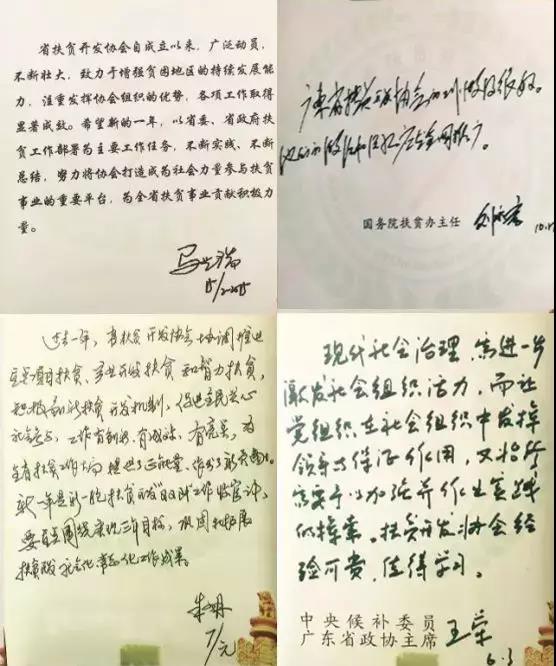 省扶贫开发协会自成立以来，广泛动员，
不断壮大，致力于增强贫困地区的持续发展能
力，注重发挥协会组织的优势，各项工作取得
显著成效。希望新的一年，以省委、省政府扶
贫工作部署为主要工作任务，不断实践、不断
总结，努力将协会打造成为社会力量参与扶贫
事业的重要平台，为全省扶贫事业贡献积极力
量。
广东省扶贫开发协会的工作做得很好。
他们的做法和经验应在全国推广。
国务院扶贫办主任 刘永富
过去一年，省扶贫开发协会协调推进
扶贫、产业开发扶贫和智力扶贫，
积极创新扶贫开发机制，
工作有创新、有成效、有亮点，为
全省扶贫工作大局提供了正能量，
新一年是新一轮扶贫开发"双到"工作
要围绕实现三年目标，巩固和拓展
扶贫 社会化 常态化工作成果。
7/元
现代社会治理，需进一步
激发社会组织活力，而让
党组织在社会组织中发挥
领导与保证作用，又恰所
需要予以加强并作出实践
的探索。扶贫开发协会经
验可贵，值得学习。
中央候补委员
广东省政协主席 王荣
6.3